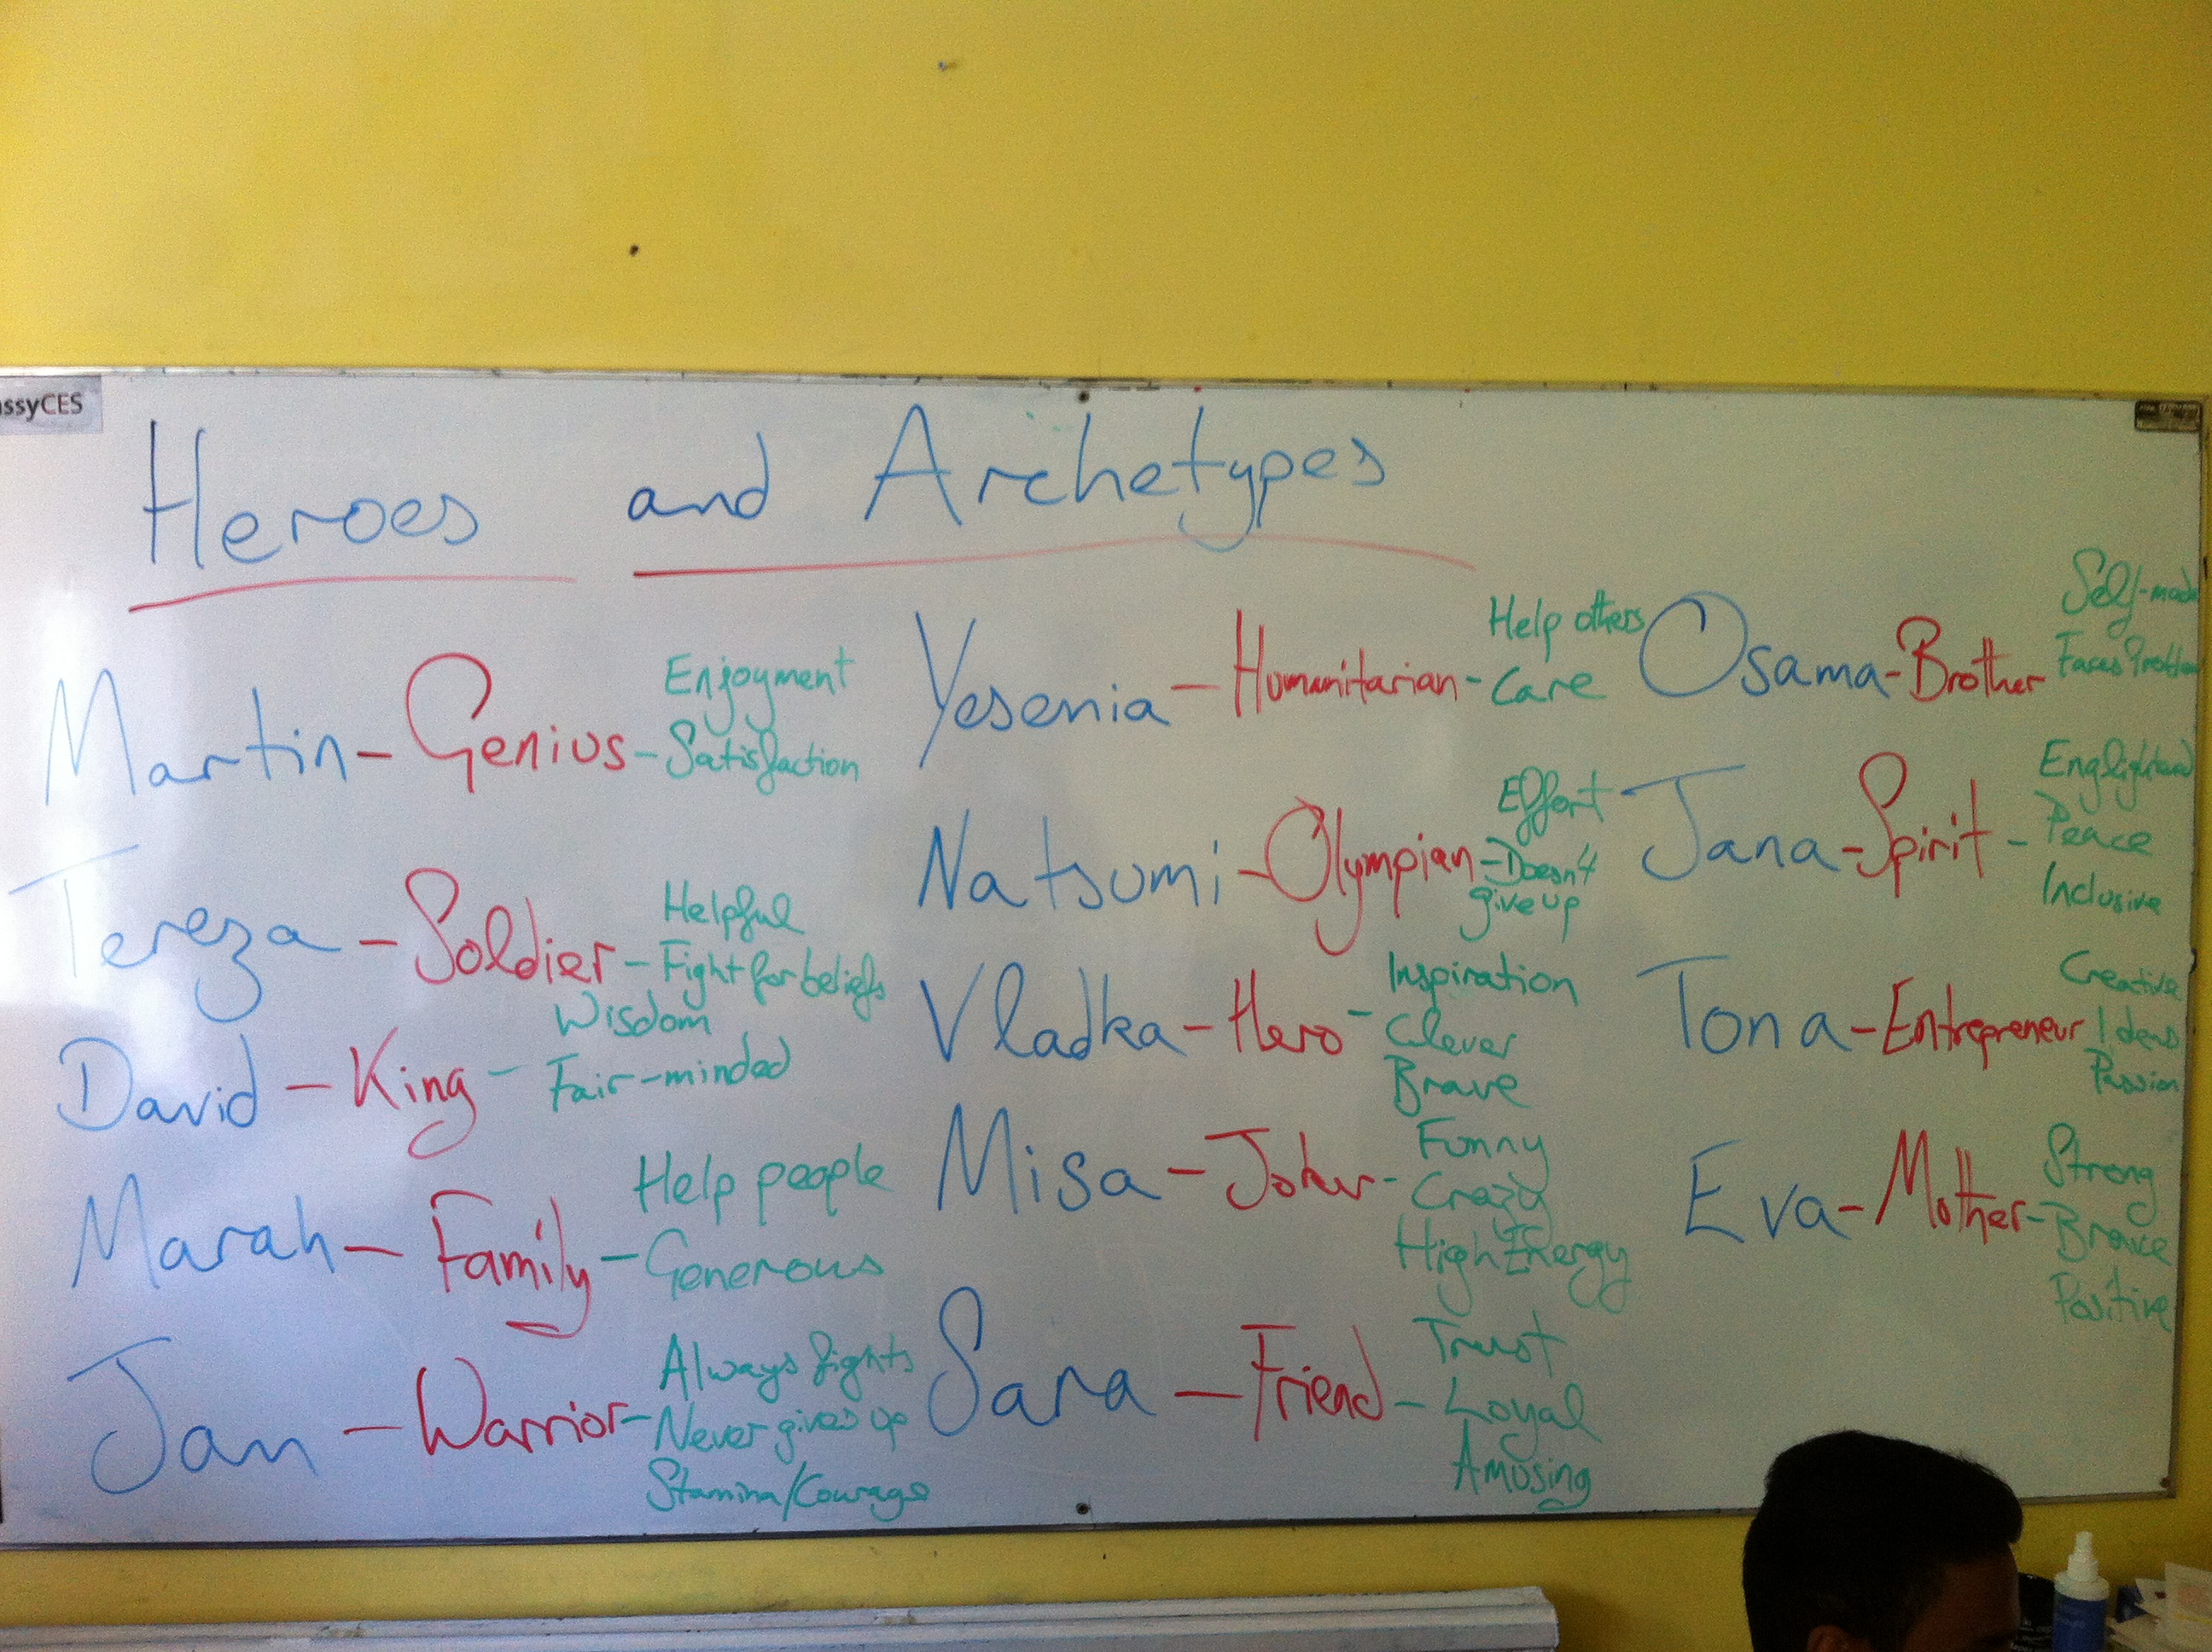 ssyCES
Heroes and Archetypes
Enjoyment
Martin - Genius - Satisfaction
Helpful
Tereza - Soldier - Fight for beliefs
Wisdom
David - King - Fair-minded
Help people
Marah - Family - Generous
Always fights
Jan - Warrior - Never gives up
Stamina/Courage
Help others
Yesenia - Humanitarian - Care
Effort
Natsumi - Olympian - Doesn't
give up
Inspiration
Vladka - Hero - Clever
Brave
Funny
Misa - Joker - Crazy
High Energy
Trust
Sara - Friend - Loyal
Amusing
Self-made
Osama - Brother Faces Problem
Englightend
Jana - Spirit - Peace
Inclusive
Creative
Tona - Entrepreneur Ideas
Passion
Strong
Eva - Mother - Brave
Positive